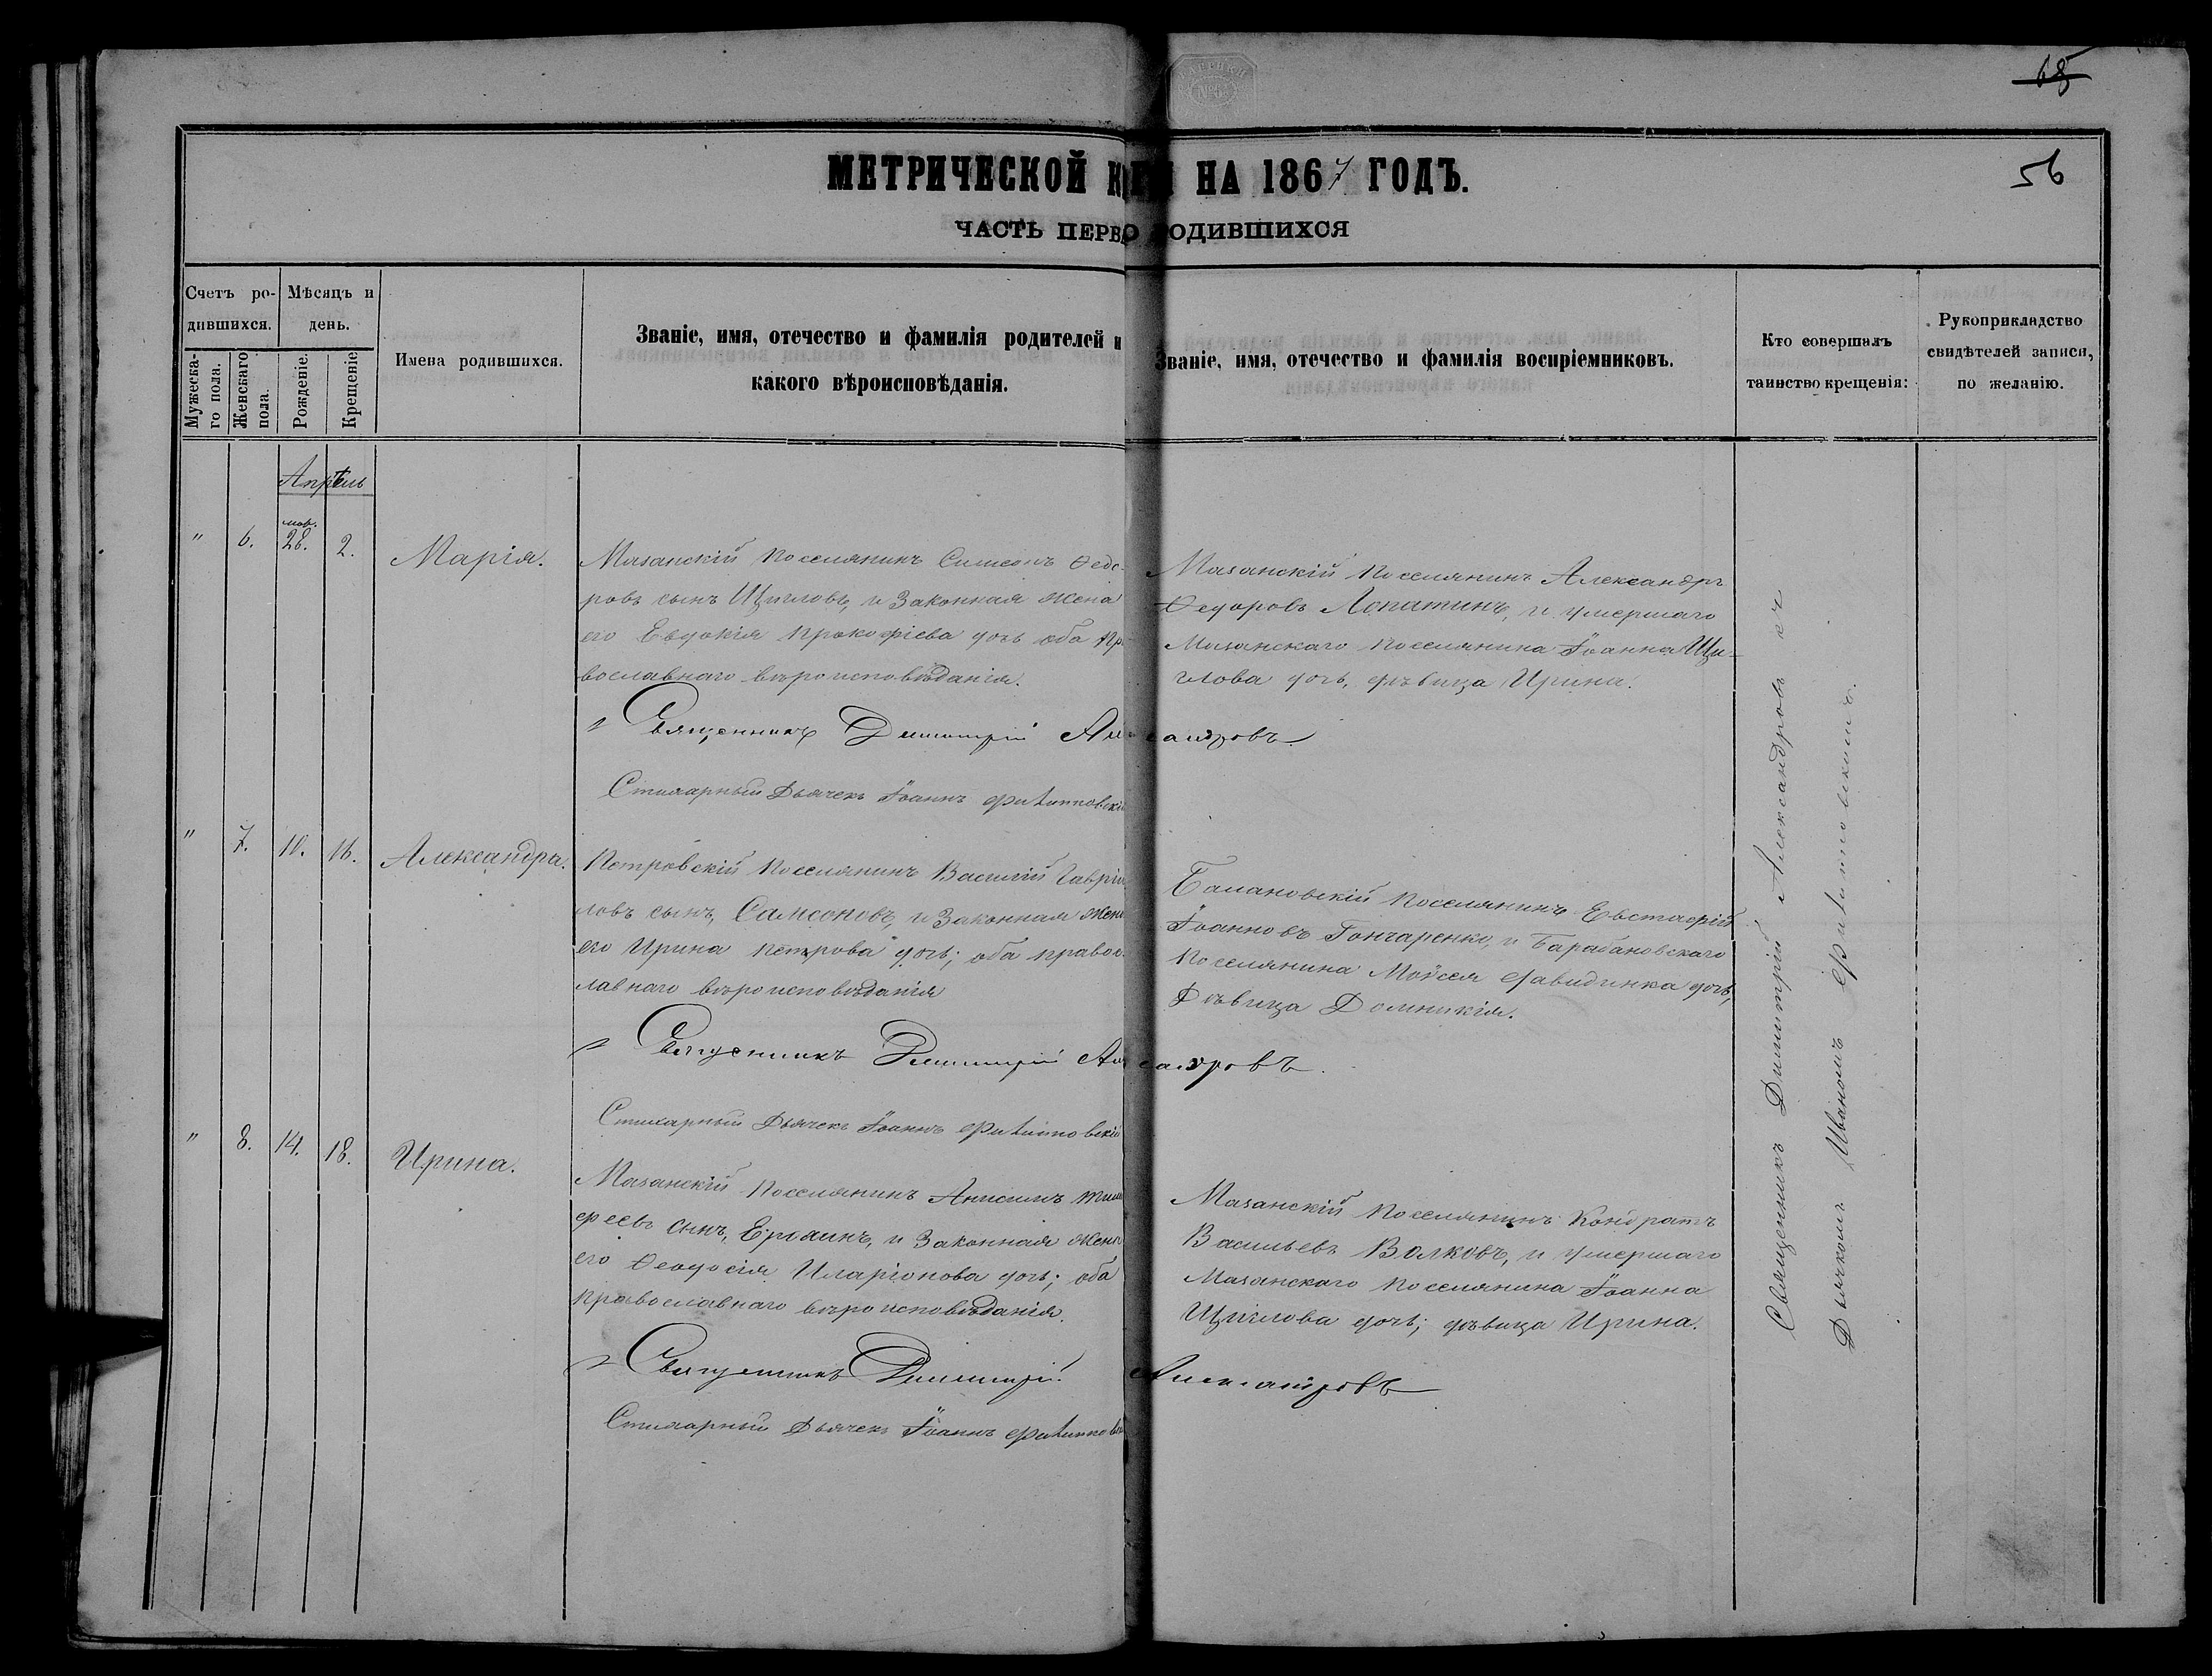 68
56
МЕТРИЧЕСКОЙ НА 1867 ГОДЪ.
ЧАСТЬ ПЕРВО ОДИВШИХСЯ
Счетъ ро-
дившихся.
Мужеска-
го пола.
Женскаго
пола.
Мѣсяцъ и
день.
Рожденіе.
Крещеніе
Имена родившихся.
Званіе, имя, отечество и фамилія родителей и
какого вѣроисповѣданія.
Званіе, имя, отечество и фамилія воспріемниковъ.
Кто совершалъ
таинство крещенія:
Рукоприкладство
свидѣтелей записи,
по желанію.
Апрѣль
" 6. 28. 2. Марія.
Мазанскій поселянинъ Симеонъ Ѳедо-
ровъ сынъ Щигловъ, и законная жена
его Евдокія Прокофіева дочь оба пр
вославнаго вѣроисповѣданія.
Мазанскій поселянинъ Александръ
Ѳедоровъ Лопатинъ, и умершаго
Мазанскаго поселянина Іоанна Щи-
глова дочь, дѣвица Ирина.
Священникъ Димитрій Александровъ
Стихарный Дьячекъ Іоаннъ Филипповскі
" 7. 10. 16. Александра.
Петровскій поселянинъ Василій Гаврі
ловъ сынъ, Самсоновъ, и законная жен
его Ирина Петрова дочь; оба правос
лавнаго вѣроисповѣданія
поселянинъ Евстафій
Іоанновъ Гончаренко, и Барабановскаго
поселянина Моѵсея дочь,
Дѣвица Домникія.
Священникъ Димитрій Александровъ.
Стихарный Дьячекъ Іоаннъ Филипповскій
" 8. 14. 18. Ирина.
Мазанскій поселянинъ Анисимъ Тим
феевъ сынъ, Ерохинъ, и законная жен
его Ѳеодосія Иларіонова дочь; оба
православнаго вѣроисповѣданія.
Мазанскій поселянинъ Кондратъ
Васильевъ Волковъ, и умершаго
Мазанскаго поселянина Іоанна
Щиглова дочь; дѣвица Ирина.
Священникъ Димитрій Александровъ
Стихарный Дьячекъ Іоаннъ Филипповск
Священникъ Димитрій Александровъ съ
Дьячкомъ Иваномъ Филипповскимъ.